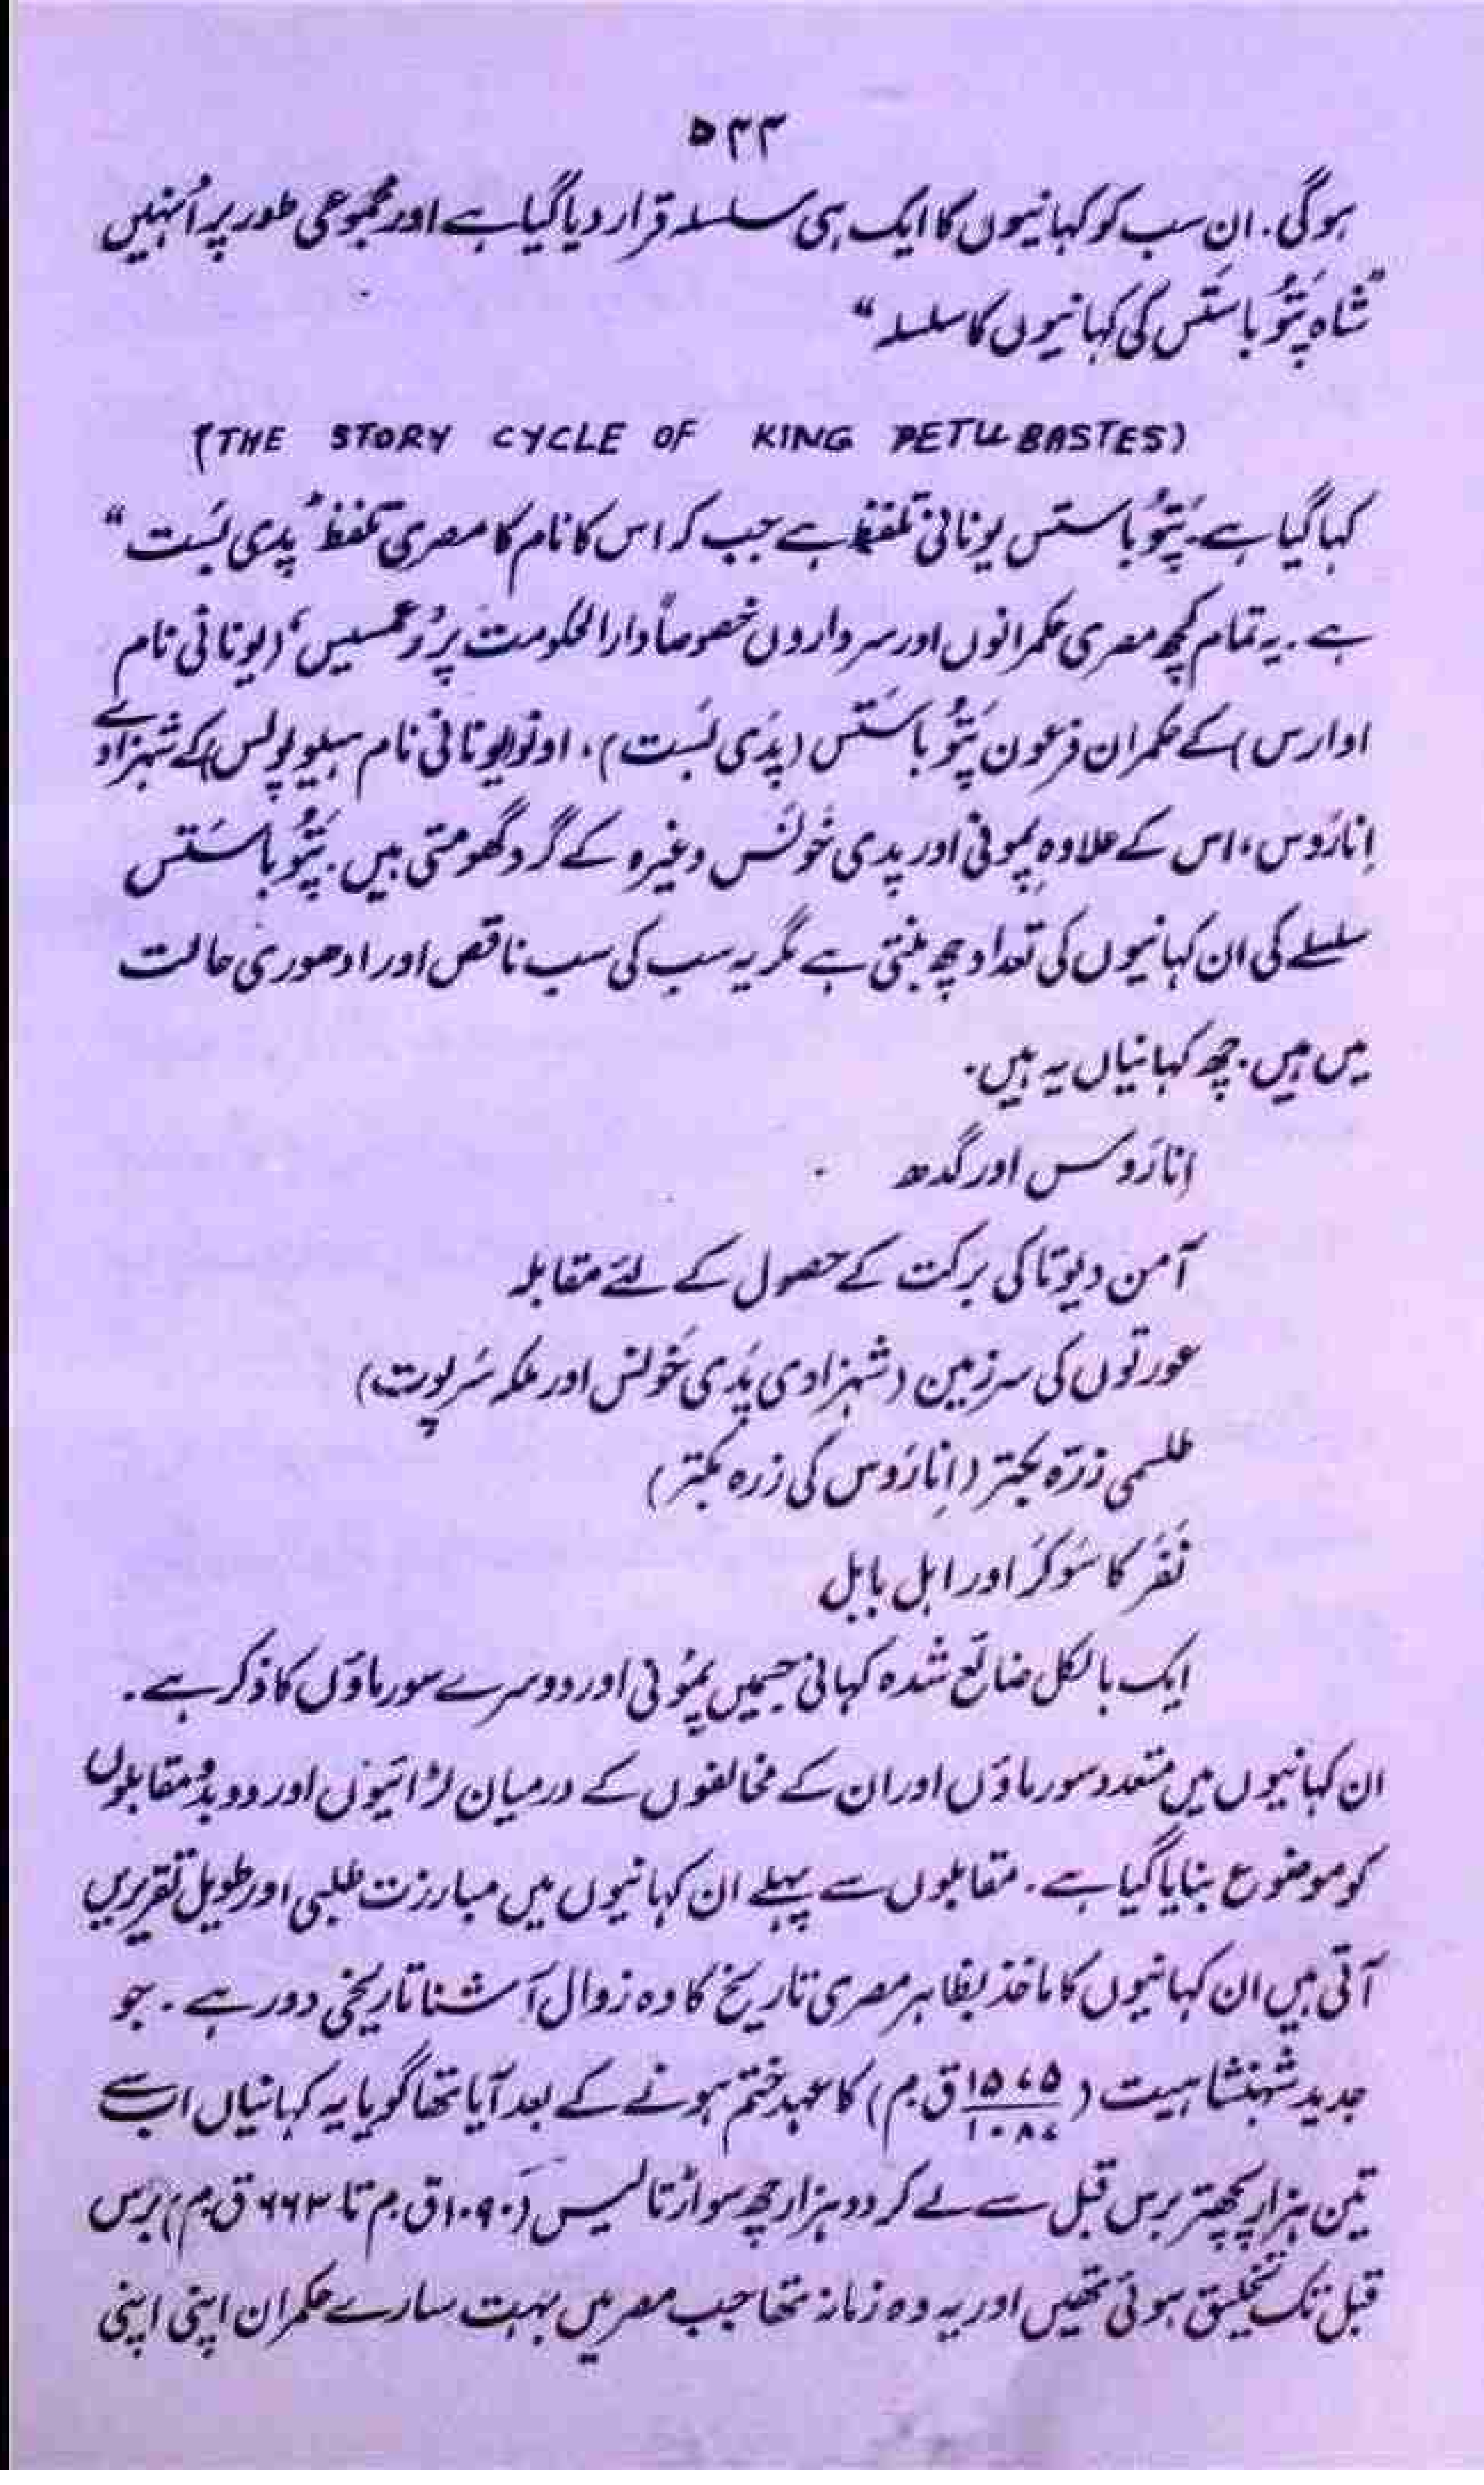 ۵۴۴
ہوگی۔ ان سب کو کہانیوں کا ایک ہی سلسلہ قرار دیا گیا ہے اور مجموعی طور پر اُنہیں
”شاہ پَتُو باستَس کی کہانیوں کا سلسلہ“
(THE STORY CYCLE OF KING PETUBASTES)
کہا گیا ہے۔ پَتُو باستس یونانی تلفظ ہے جب کہ اس کا نام کا مصری تلفظ ”پدی بَست“
ہے۔ یہ تمام کچھ مصری حکمرانوں اور سرداروں خصوصاً دارالحکومت پر رعمسیس، (یونانی نام
اوارس) کے حکمران فرعون پَتُو باستَس (پدَی بَست)، اونو (یونانی نام ہیلیوپولس) کے شہزادے
اِنارَوس، اس کے علاوہ پمونی اور پدی خَونس وغیرہ کے گرد گھومتی ہیں۔ پَتُو باستَس
سلسلے کی ان کہانیوں کی تعداد چھ بنتی ہے مگر یہ سب کی سب ناقص اور ادھوری حالت
میں ہیں۔ چھ کہانیاں یہ ہیں۔
اِنارَوس اور گدھ
آمن دیوتا کی برکت کے حصول کے لئے مقابلہ
عورتوں کی سرزمین (شہزادی پَدی خَونس اور ملکہ سَرپوت)
طلسمی زرّہ بکتر (اِنارَوس کی زرہ بکتر)
نَفَر کا سَوکَر اور اہل بابل
ایک بالکل ضائع شدہ کہانی جسمیں پمُونی اور دوسرے سورماؤں کا ذکر ہے۔
ان کہانیوں میں متعدد سورماؤں اور ان کے مخالفوں کے درمیان لڑائیوں اور دوبدُو مقابلوں
کو موضوع بنایا گیا ہے۔ مقابلوں سے پہلے ان کہانیوں میں مبارزت طلبی اور طویل تقریریں
آتی ہیں ان کہانیوں کا ماخذ بظاہر مصری تاریخ کا وہ زوال آشنا تاریخی دور ہے۔ جو
جدید شہنشاہیت (۱۵۷۵/۱۰۸۷ ق۔م) کا عہد ختم ہونے کے بعد آیا تھا گویا یہ کہانیاں اب سے
تین ہزار پچھتر برس قبل سے لے کر دو ہزار چھ سو اڑتالیس (۱۰۹۰ ق۔م تا ۶۶۳ ق۔م) برس
قبل تک تخلیق ہوئی تھیں اور یہ وہ زمانہ تھا جب مصر میں بہت سارے حکمران اپنی اپنی